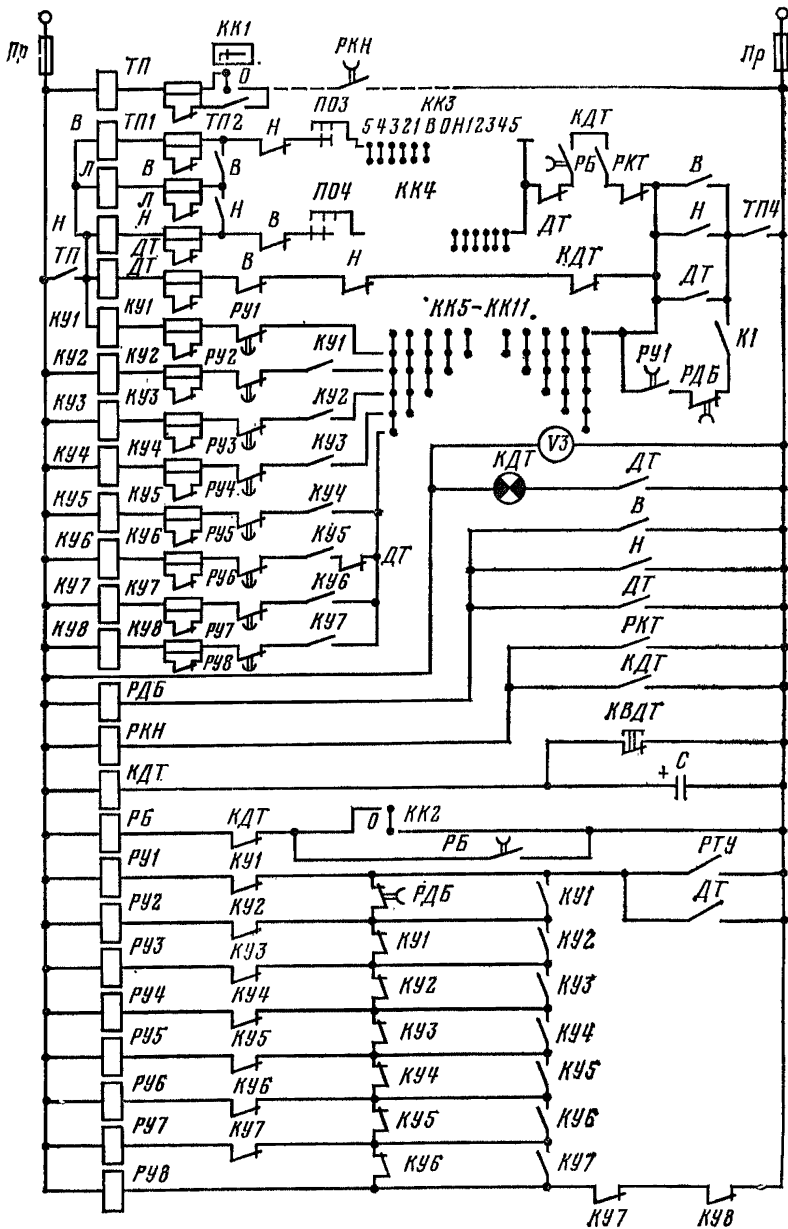 КК1
Пр
ТП
О
РКН
Пр
В
ТП1
ТП2
Н
ПО3
КК3
5 4 3 2 1 В О Н 1 2 3 4 5
КДТ
РБ
РКТ
В
Л
В
В
Л
Н
КК4
ДТ
Н
ТП4
Н
Н
ДТ
В
ПО4
ТП
ДТ
В
Н
КДТ
ДТ
КУ1
КУ1
РУ1
КК5-КК11
К1
КУ2
КУ2
РУ2
КУ1
РУ1
РДБ
КУ3
КУ3
КУ2
КУ4
КУ4
РУ3
КУ3
V3
КДТ
ДТ
КУ5
КУ5
РУ4
КУ4
В
КУ6
КУ6
РУ5
КУ5
ДТ
Н
КУ7
КУ7
РУ6
КУ6
ДТ
КУ8
КУ8
РУ7
КУ7
РКТ
РУ8
КДТ
РДБ
РКН
КВДТ
КДТ
+ С
РБ
КДТ
О
КК2
РБ
РУ1
КУ1
РТУ
РДБ
КУ1
ДТ
РУ2
КУ2
КУ1
КУ2
РУ3
КУ3
КУ2
КУ3
РУ4
КУ4
КУ3
КУ4
РУ5
КУ5
КУ4
КУ5
РУ6
КУ6
КУ5
КУ6
РУ7
КУ7
КУ6
КУ7
РУ8
КУ7
КУ8